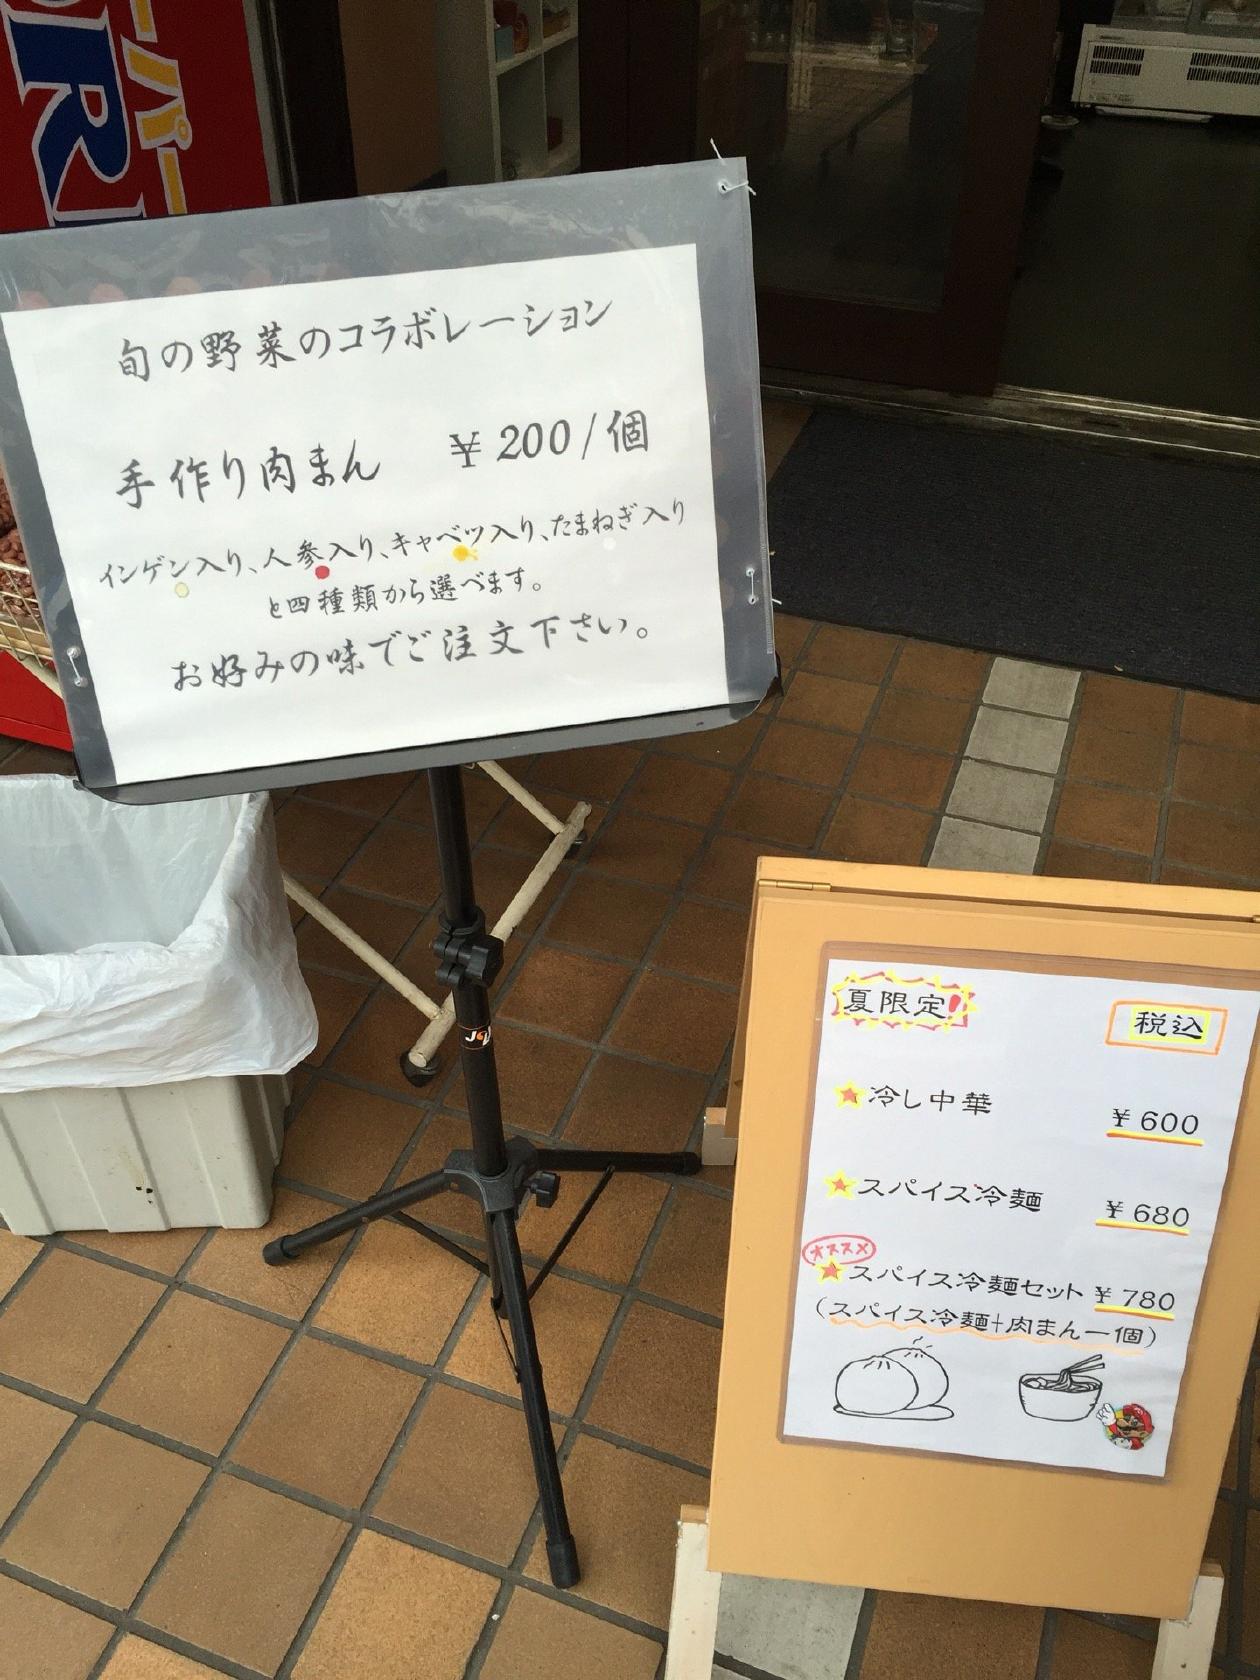 ーパー
OR
旬の野菜のコラボレーション
手作り肉まん ¥200/個
インゲン入り、人参入り、キャベツ入り、たまねぎ入り
と四種類から選べます。
お好みの味でご注文下さい。
夏限定! 税込
★冷し中華 ¥600
★スパイス冷麺 ¥680
オススメ
★スパイス冷麺セット ¥780
(スパイス冷麺+肉まん一個)